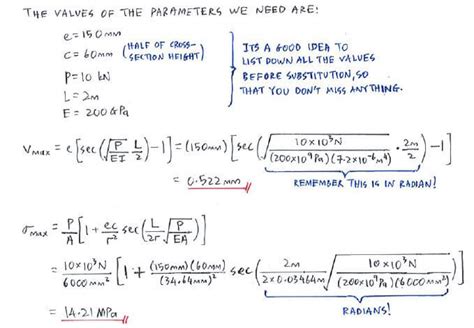 THE VALUES OF THE PARAMETERS WE NEED ARE:
e=150mm
c=60mm (HALF OF CROSS-SECTION HEIGHT)
P=10 kN
L=2m
E=200GPa
ITS A GOOD IDEA TO
LIST DOWN ALL THE VALUES
BEFORE SUBSTITUTION, SO
THAT YOU DON'T MISS ANYTHING.
Vmax = e[sec(√(P/EI) L/2)-1] = (150mm)[sec(√(10×10³N/(200×10⁹Pa)(7.2×10⁻⁶m⁴)) · 2m/2)-1]
= 0.522mm
REMEMBER THIS IS IN RADIAN!
σmax = P/A[1+ec/r² sec(L/2r √(P/EA))]
= 10×10³N/6000mm²[1+(150mm)(60mm)/(34.64mm)² sec(2m/2×0.03464m √(10×10³N/(200×10⁹Pa)(6000mm²)))]
= 14.21 MPa
RADIANS!